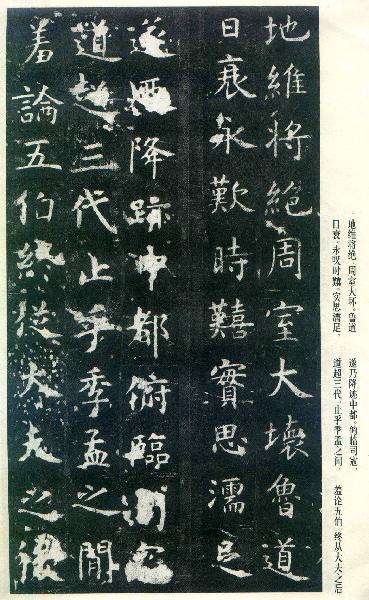 地維將絕周室大壞魯道
日衰永歎時囏實思濡足
遂迺降跡中都俯臨司寇
道超三代止乎季孟之間
羞論五伯終從大夫之後
地维将绝,周室大坏。鲁道
日衰。永叹时艰,实思濡足,
遂乃降迹中都。俯临司寇,
道超三代,止乎季孟之间。
羞论五伯,终从大夫之后